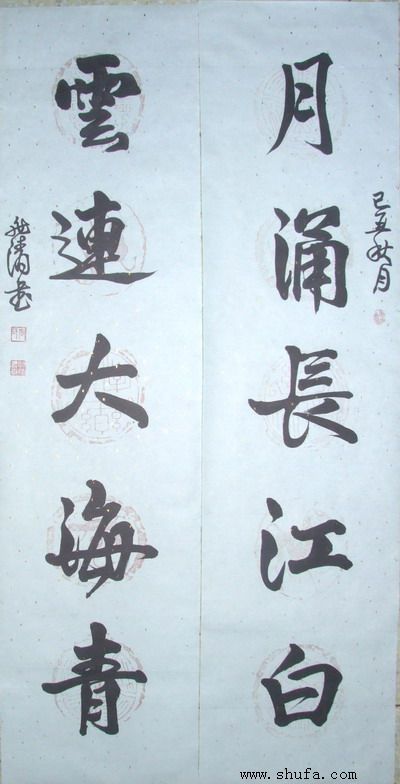 己丑秋月
月涌長江白
雲連大海青
www.shufa.com